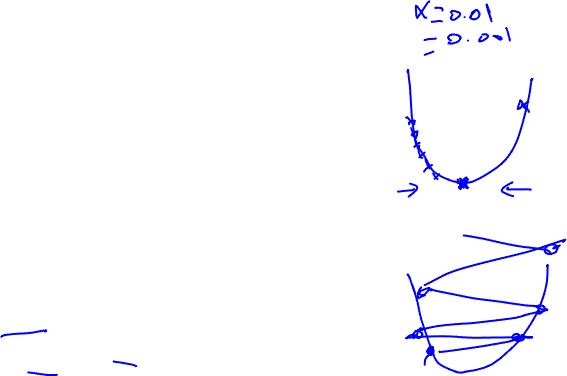 α=0.01
=0.001
=